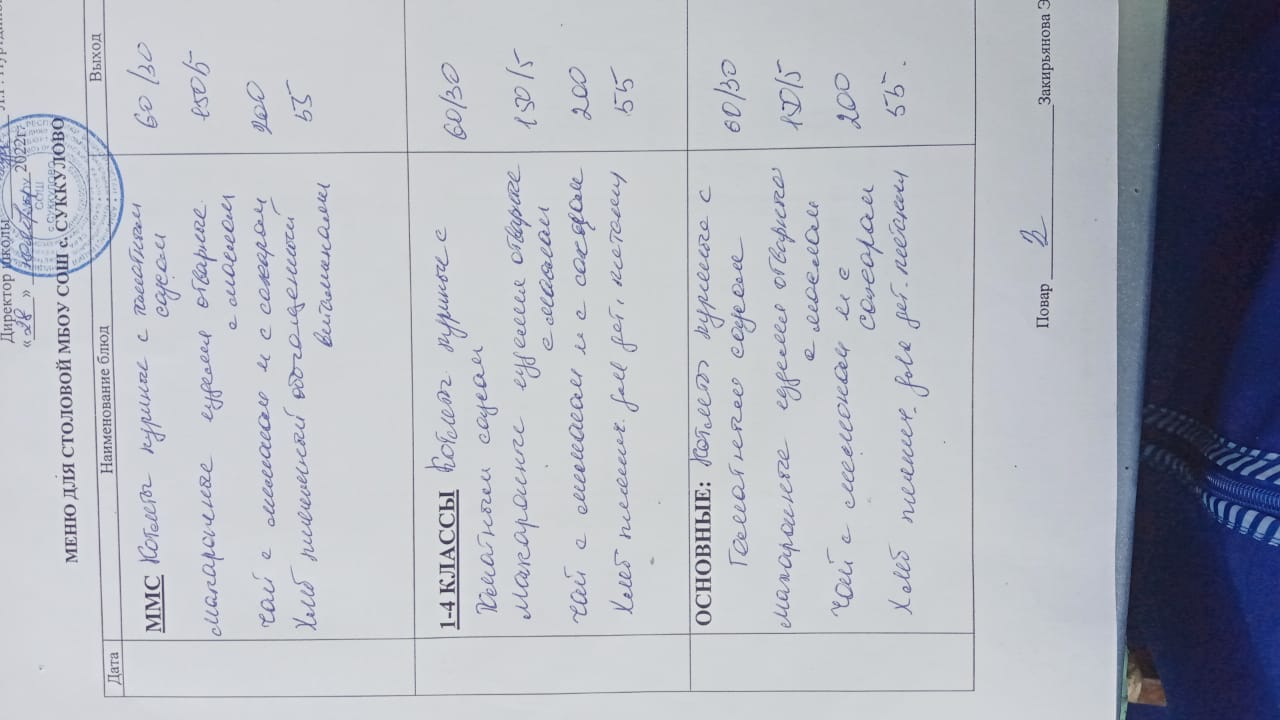 Директор школы
«28» 2022г.
МЕНЮ ДЛЯ СТОЛОВОЙ МБОУ СОШ с. СУККУЛОВО
Дата Наименование блюд Выход
ММС Котлеты куриные с томатным 60/30
соусом
макаронные изделия отварные 150/5
с маслом
чай с лимоном и с сахаром 200
Хлеб пшеничный обогащенный 55
витаминами
1-4 КЛАССЫ Котлеты куриные с 60/30
томатным соусом
макаронные изделия отварные 150/5
с маслом
чай с лимоном и с сахаром 200
Хлеб пшенич. для дет. питания 55
ОСНОВНЫЕ: Котлеты куриные с 60/30
Томатным соусом
макаронные изделия отварные 150/5
с маслом
Чай с лимоном и с 200
сахаром
Хлеб пшенич. для дет. питания 55.
Повар Закирьянова Э